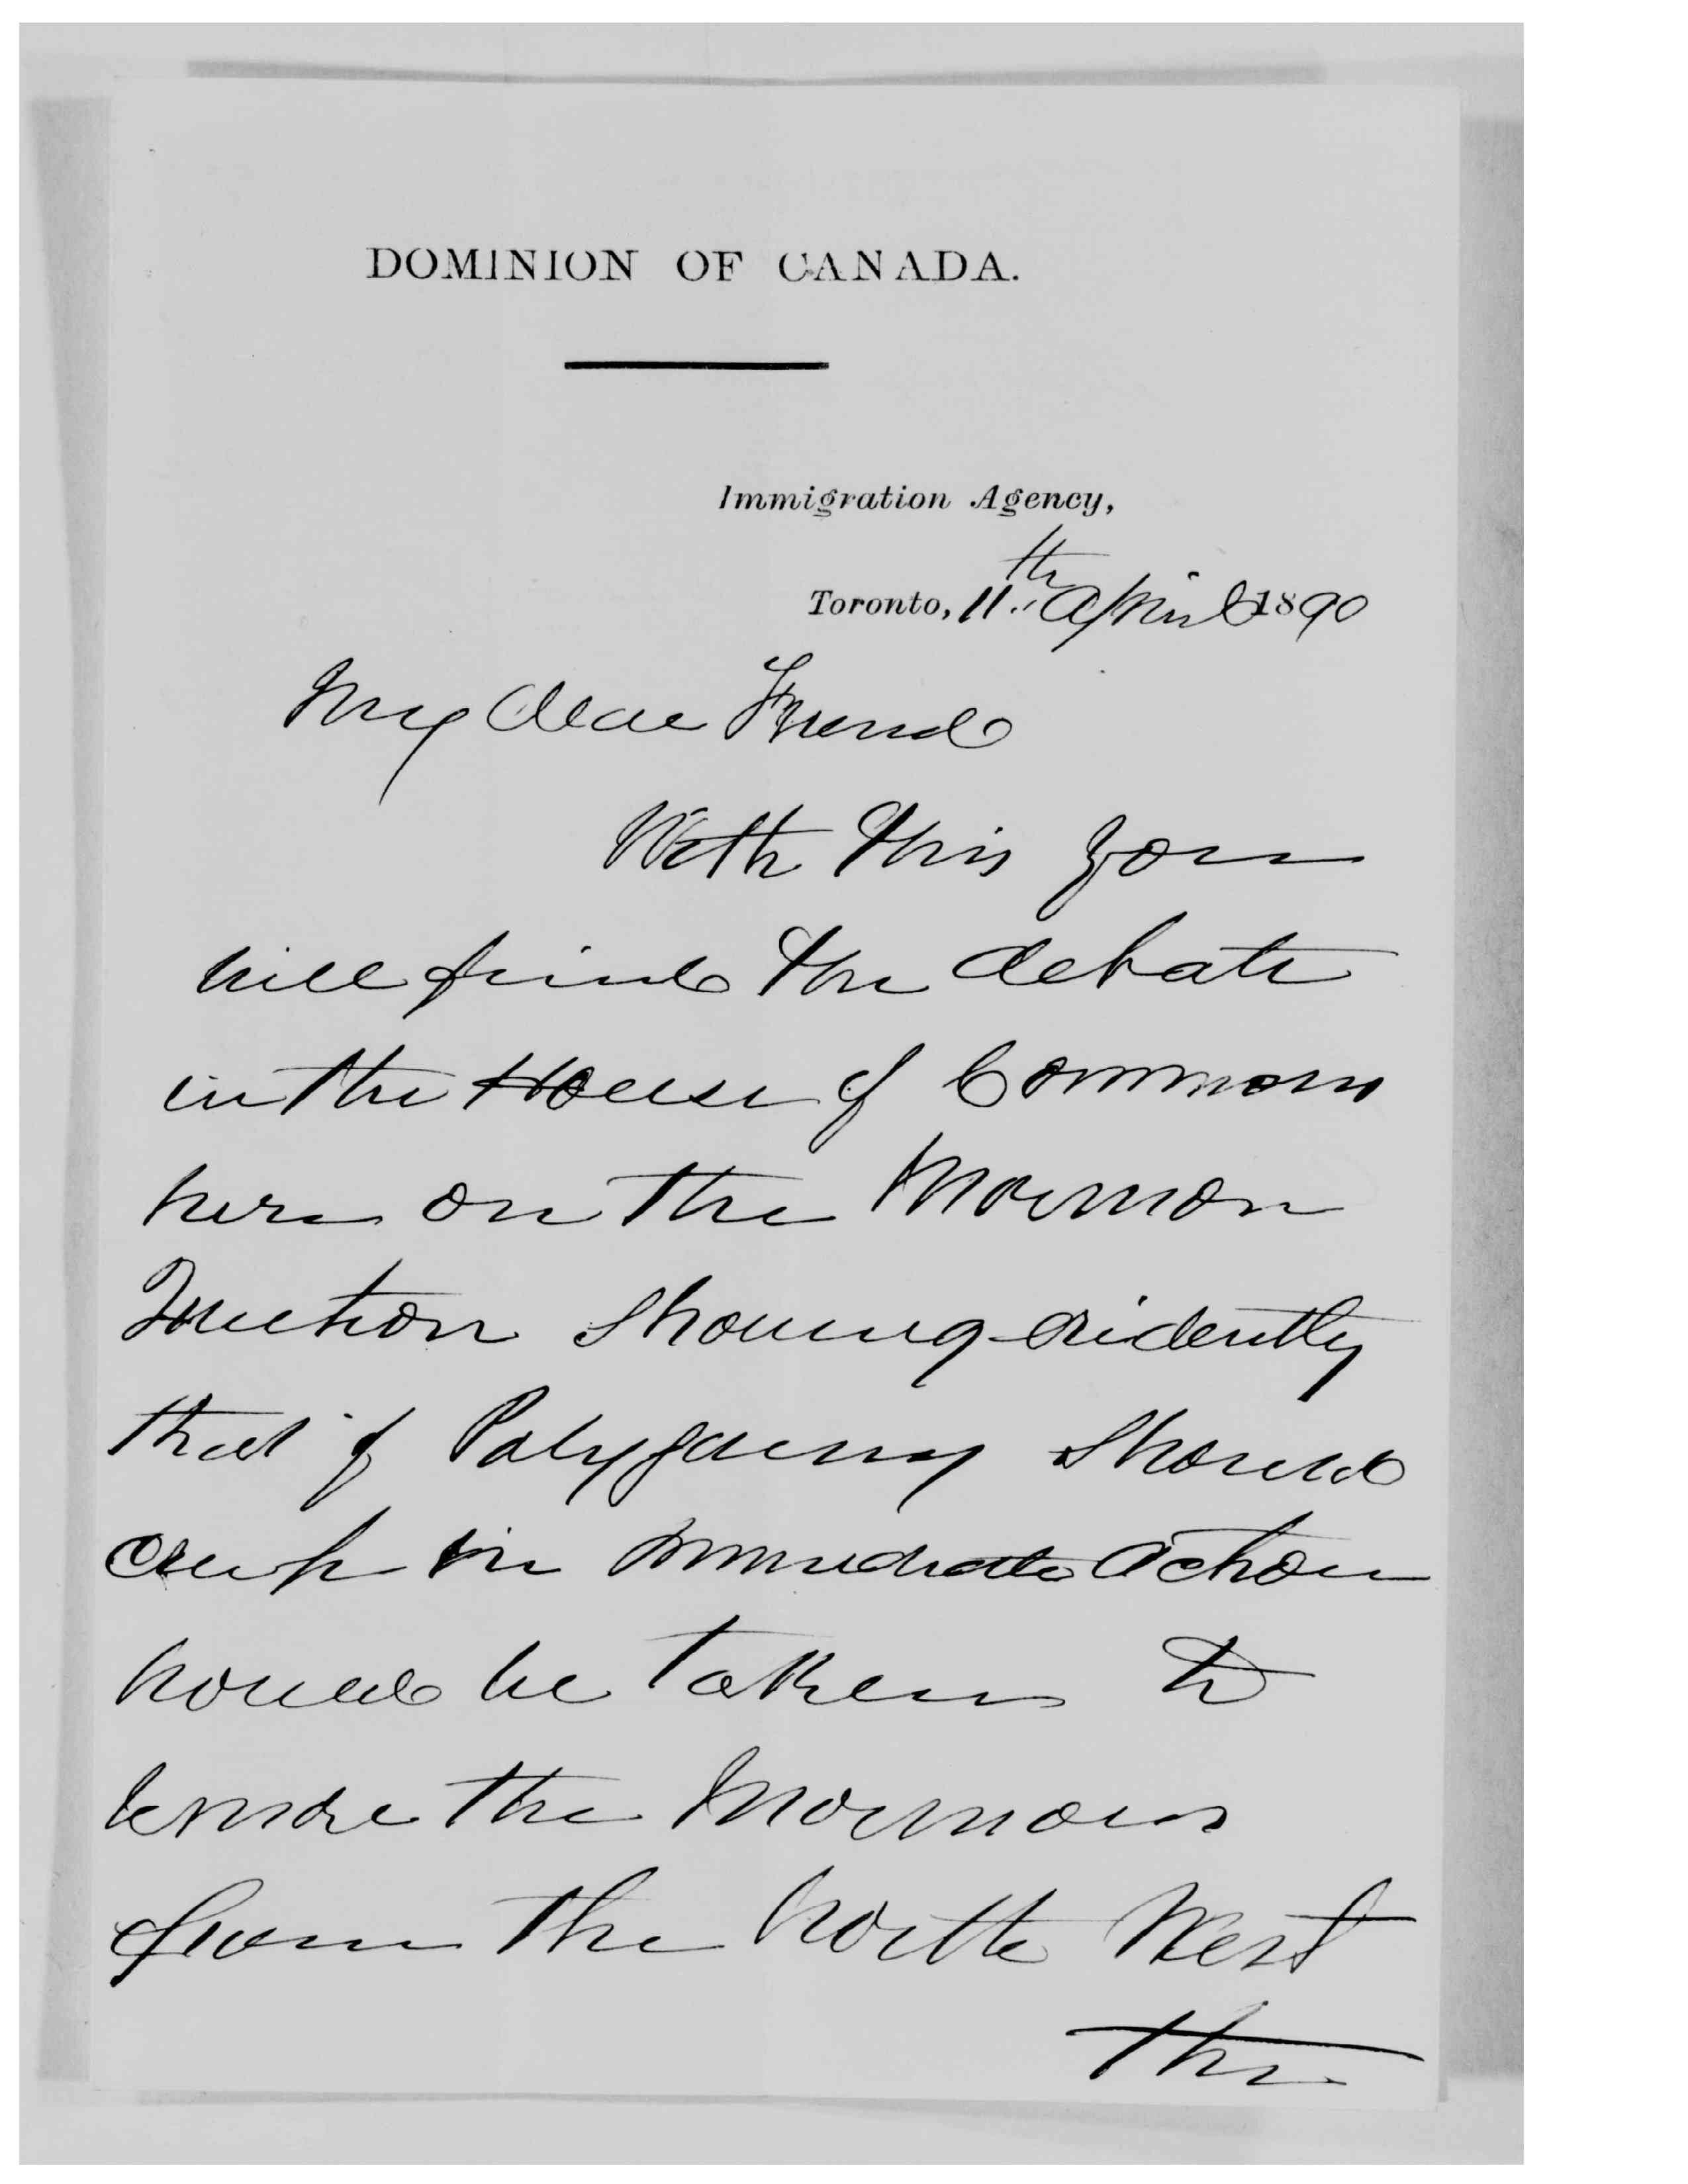 DOMINION OF CANADA.
Immigration Agency,
Toronto, 11th April 1890
My dear Friend
With this you
will find the debate
in the House of Commons
here on the Mormon
Question showing evidently
that if Polygamy should
creep in immediate action
would be taken to
remove the Mormons
from the North West
the